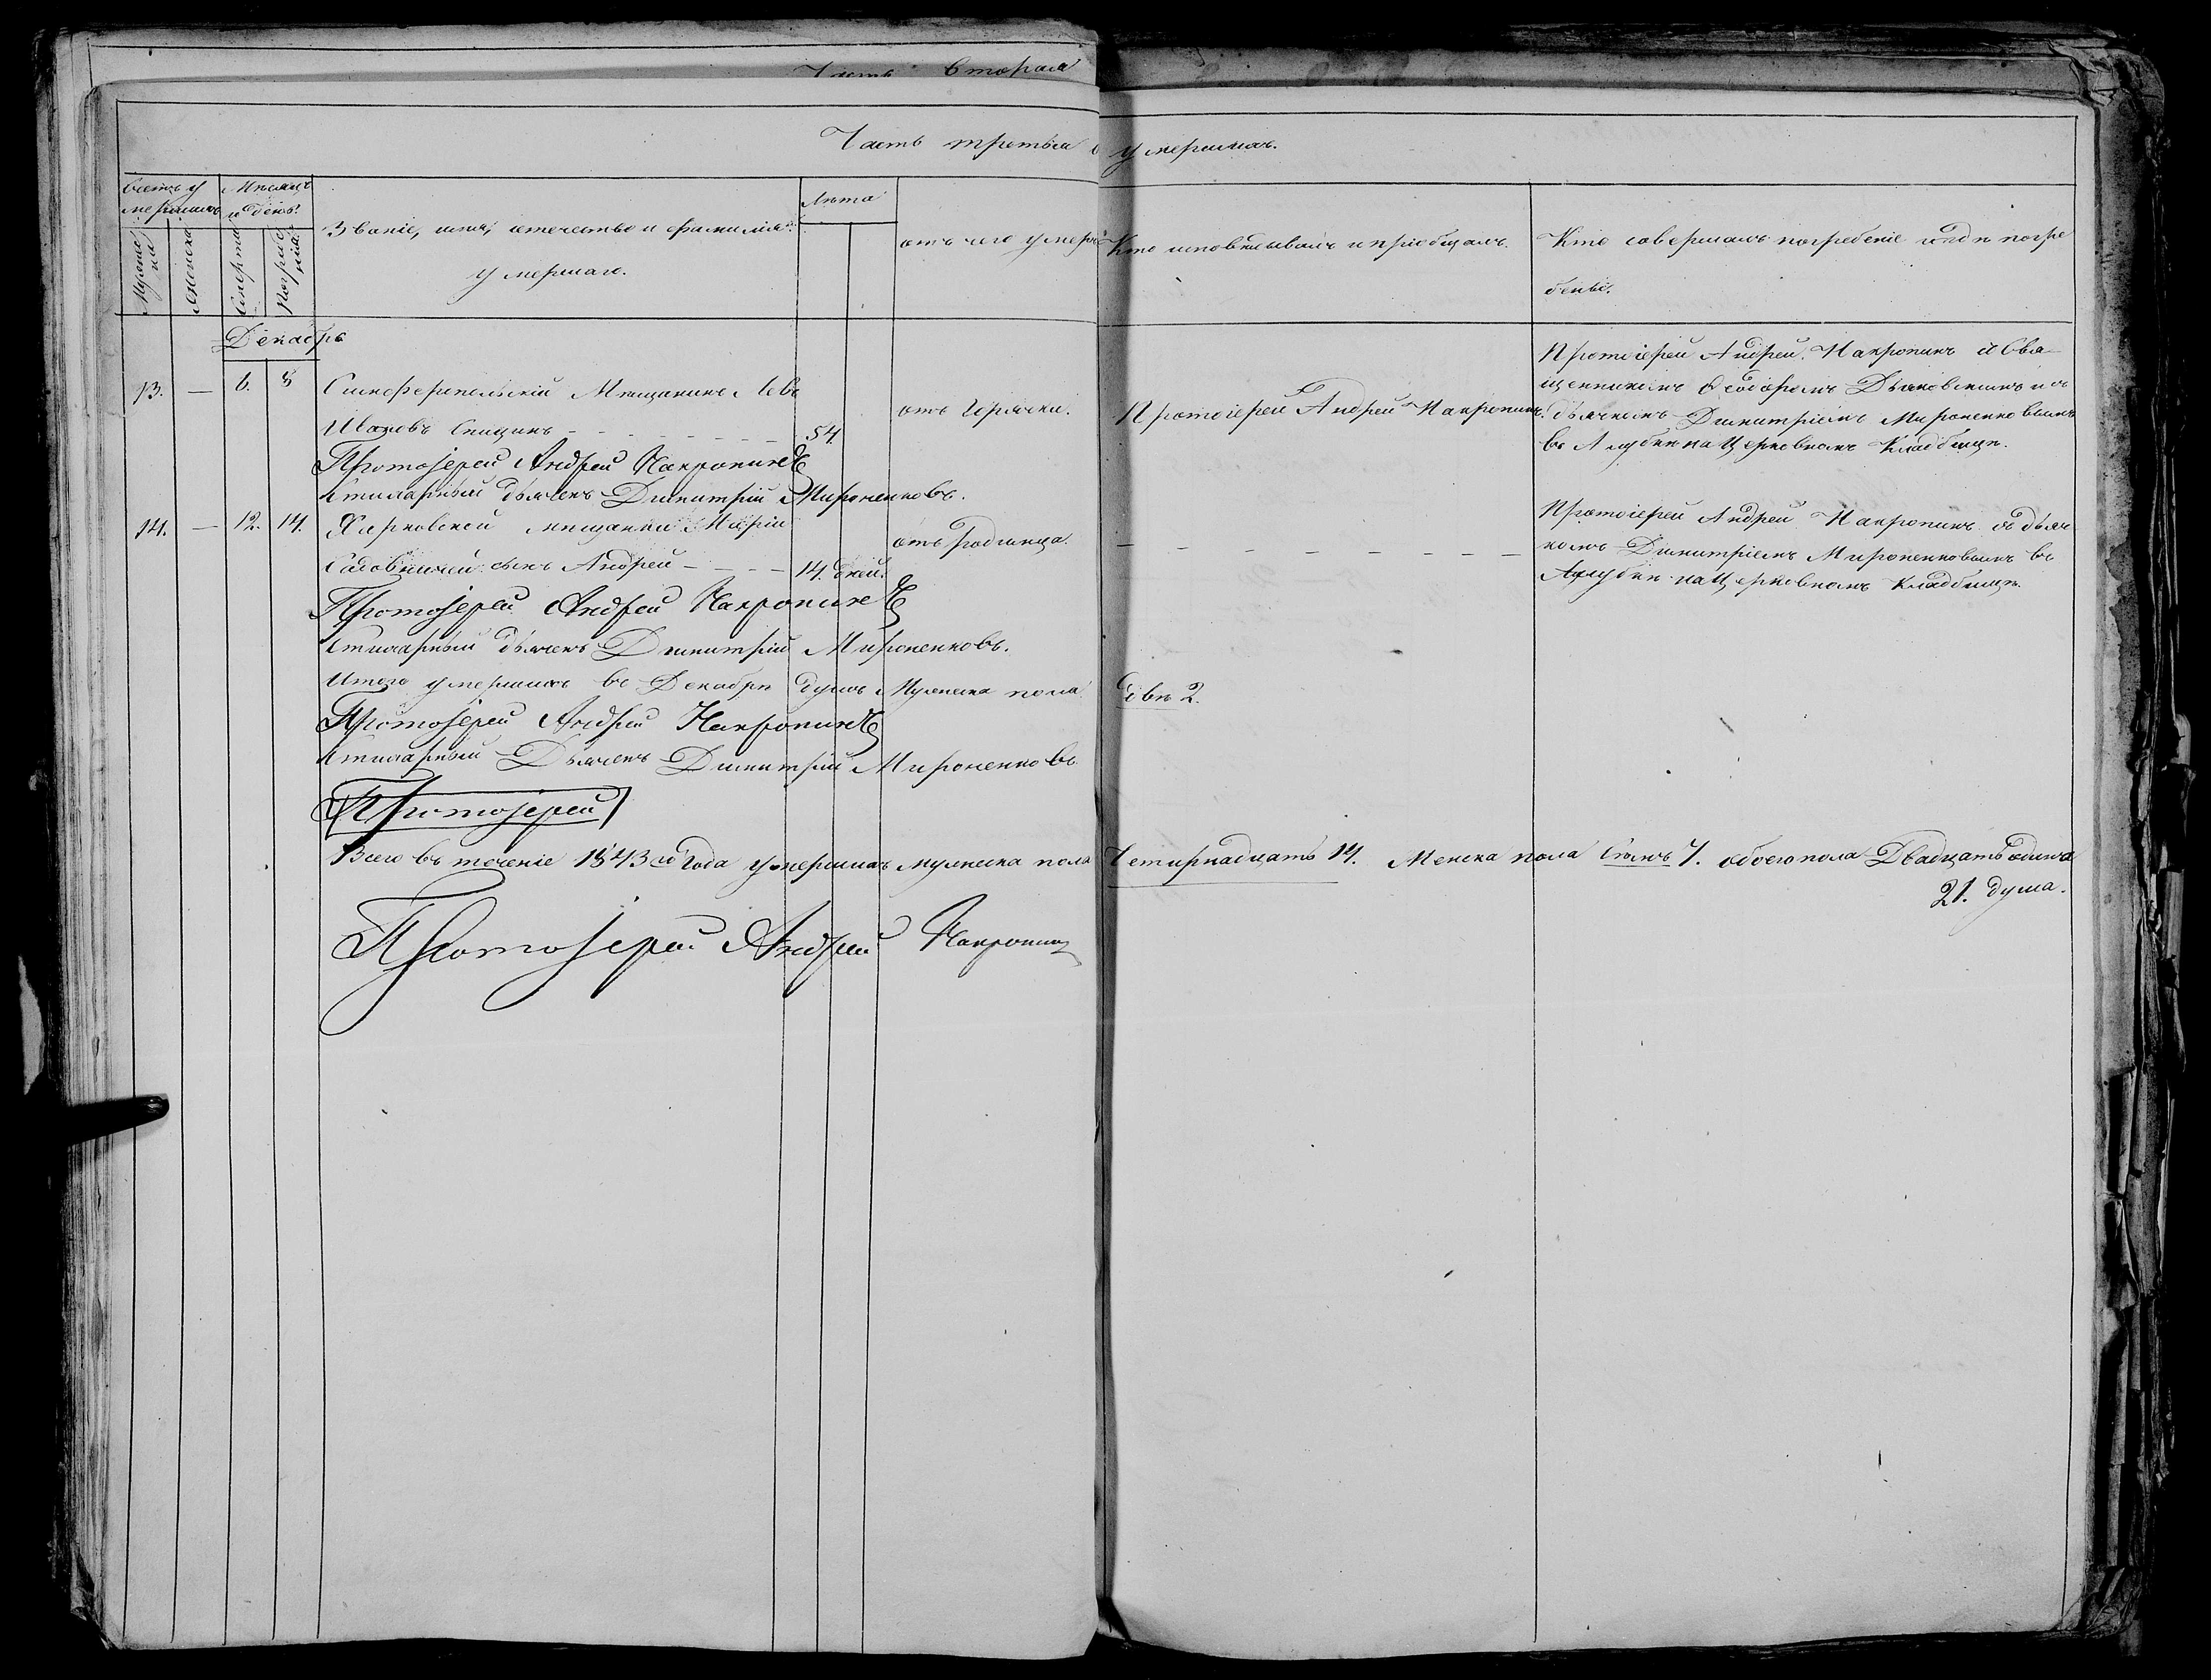 Часть Вторая
Часть третья о умершихъ.
Счетъ у
мершихъ
Мѣсяцъ
и день.
Мужеска
Женска
Смерти
Погребенія
Званіе, имя, отечество и фамилія
умершаго.
Лѣта
отъ чего умеръ
Кто исповѣдывалъ и пріобщалъ.
Кто совершалъ погребеніе и гдѣ погре
бены.
Декабрь
13. — 6. 8 Симферопольскій Мѣщанинъ Левъ
Ивановъ Спицинъ - - - - 54.
отъ Горячки.
Протоіерей Андрей Накропинъ.
Протоіерей Андрей Накропинъ съ Свя
щенникомъ Ѳеодоромъ Дьяковскимъ и съ
дьячкомъ Димитріемъ Мироненковымъ
въ Алубки на Церковномъ Кладбищѣ.
Протоіерей Андрей Накропинъ
Стихарный дьячекъ Димитрій Мироненковъ.
14. — 12. 14. Харковской мѣщанки Маріи
Садовничей сынъ Андрей - - - - 14. дней.
отъ Родимца.
- - - - - - - - -
Протоіерей Андрей Накропинъ съ дьяч
комъ Димитріемъ Мироненковымъ въ
Алубки на Церковномъ Кладбищѣ.
Протоіерей Андрей Накропинъ
Стихарный дьячекъ Димитрій Мироненковъ.
Итого умершихъ въ Декабрѣ душъ Мужеска пола двѣ 2.
Протоіерей Андрей Накропинъ
Стихарный Дьячекъ Димитрій Мироненковъ
Протоіерей
Всего въ теченіе 1843 го Года умершихъ мужеска пола Четирнадцать 14. Женска пола Семь 7. обоего пола Двадцать одына
21. душа.
Протоіерей Андрей Накропинъ